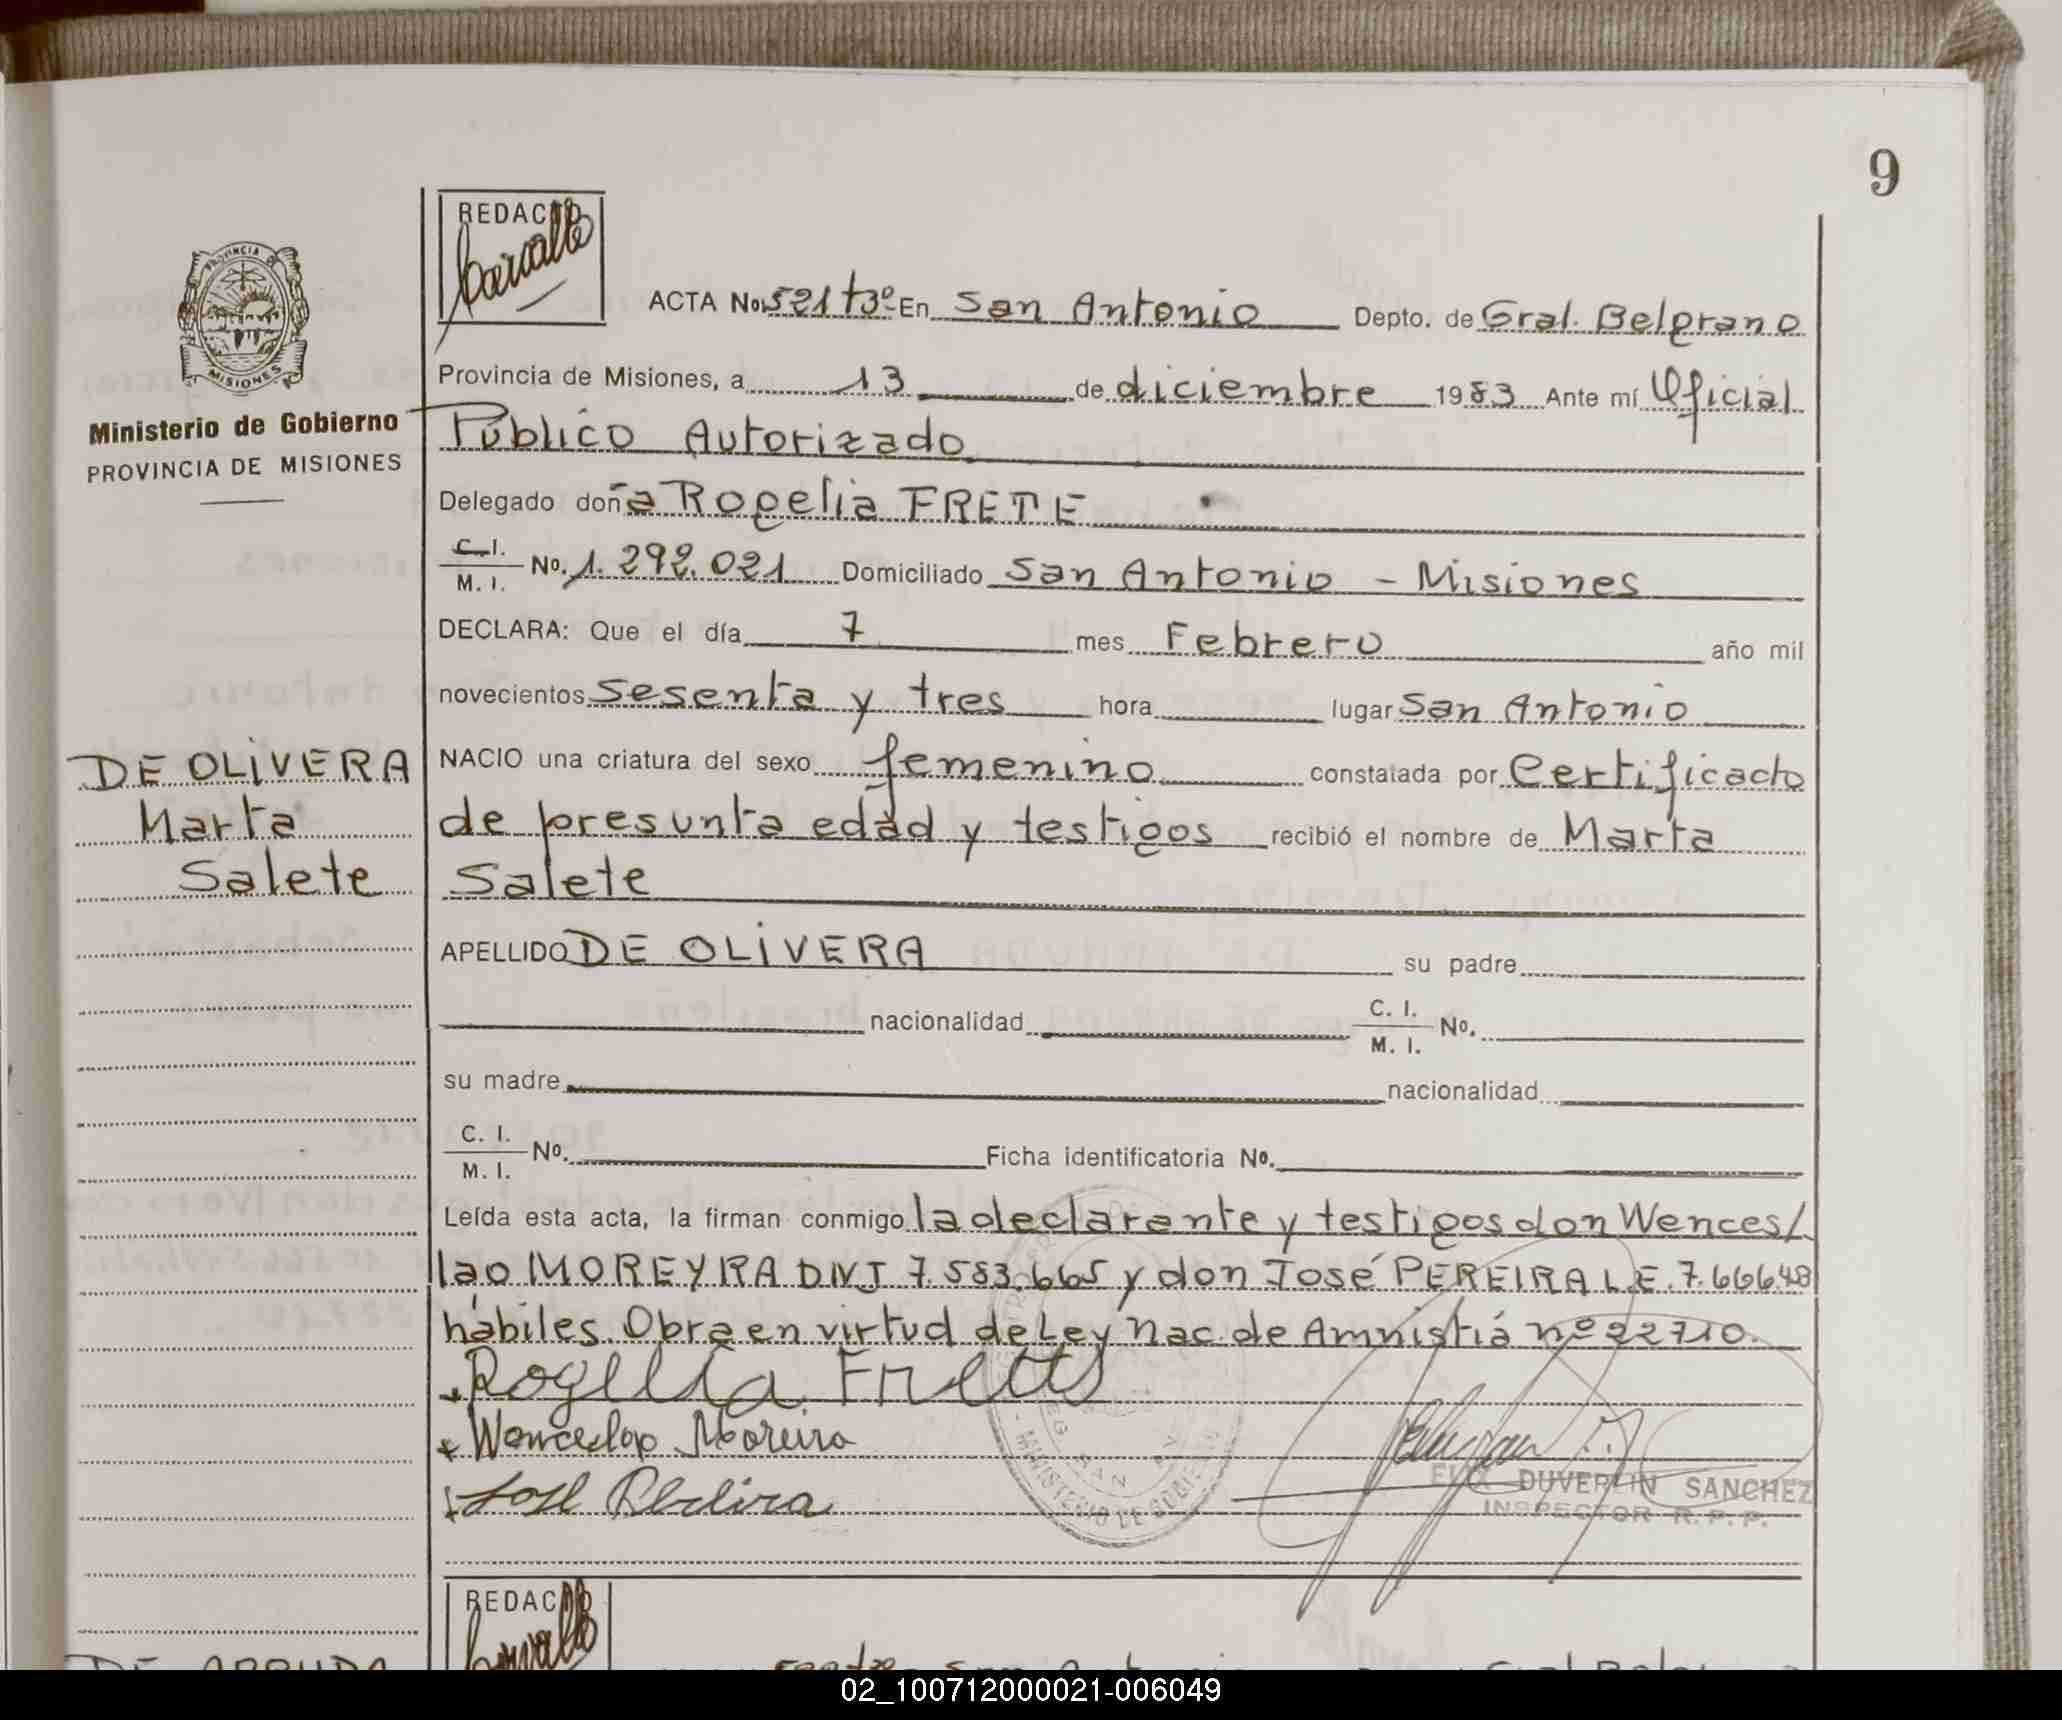 9
REDACTO
Carvallo
PROVINCIA DE
MISIONES
Ministerio de Gobierno
PROVINCIA DE MISIONES
ACTA No. 521 t3º En San Antonio Depto. de Gral. Belgrano
Provincia de Misiones, a 13 de diciembre 1983 Ante mí Oficial
Público Autorizado
Delegado doña Rogelia FRETE
C. I.
M. I. No. 1.292.021 Domiciliado San Antonio - Misiones
DECLARA: Que el día 7 mes Febrero año mil
novecientos sesenta y tres hora lugar San Antonio
DE OLIVERA
Marta
Salete
NACIO una criatura del sexo femenino constatada por Certificado
de presunta edad y testigos recibió el nombre de Marta
Salete
APELLIDO DE OLIVERA su padre
nacionalidad C. I.
M. I. No.
su madre nacionalidad
C. I.
M. I. No. Ficha identificatoria No.
Leída esta acta, la firman conmigo la declarante y testigos don Wences/
lao MOREYRA DNI 7.583.665 y don José PEREIRA L.E. 7.666.48
hábiles. Obra en virtud de Ley Nac. de Amnistiá nº 22710.
Rogelia Frette
Wenceslao Moreira
José Pereira
DUVERLIN SANCHEZ
INSPECTOR R. P. P.
MINISTERIO DE
SAN
REDACTO
Carvallo
DE ARRUDA
San Antonio Gral Belgrano
02_100712000021-006049